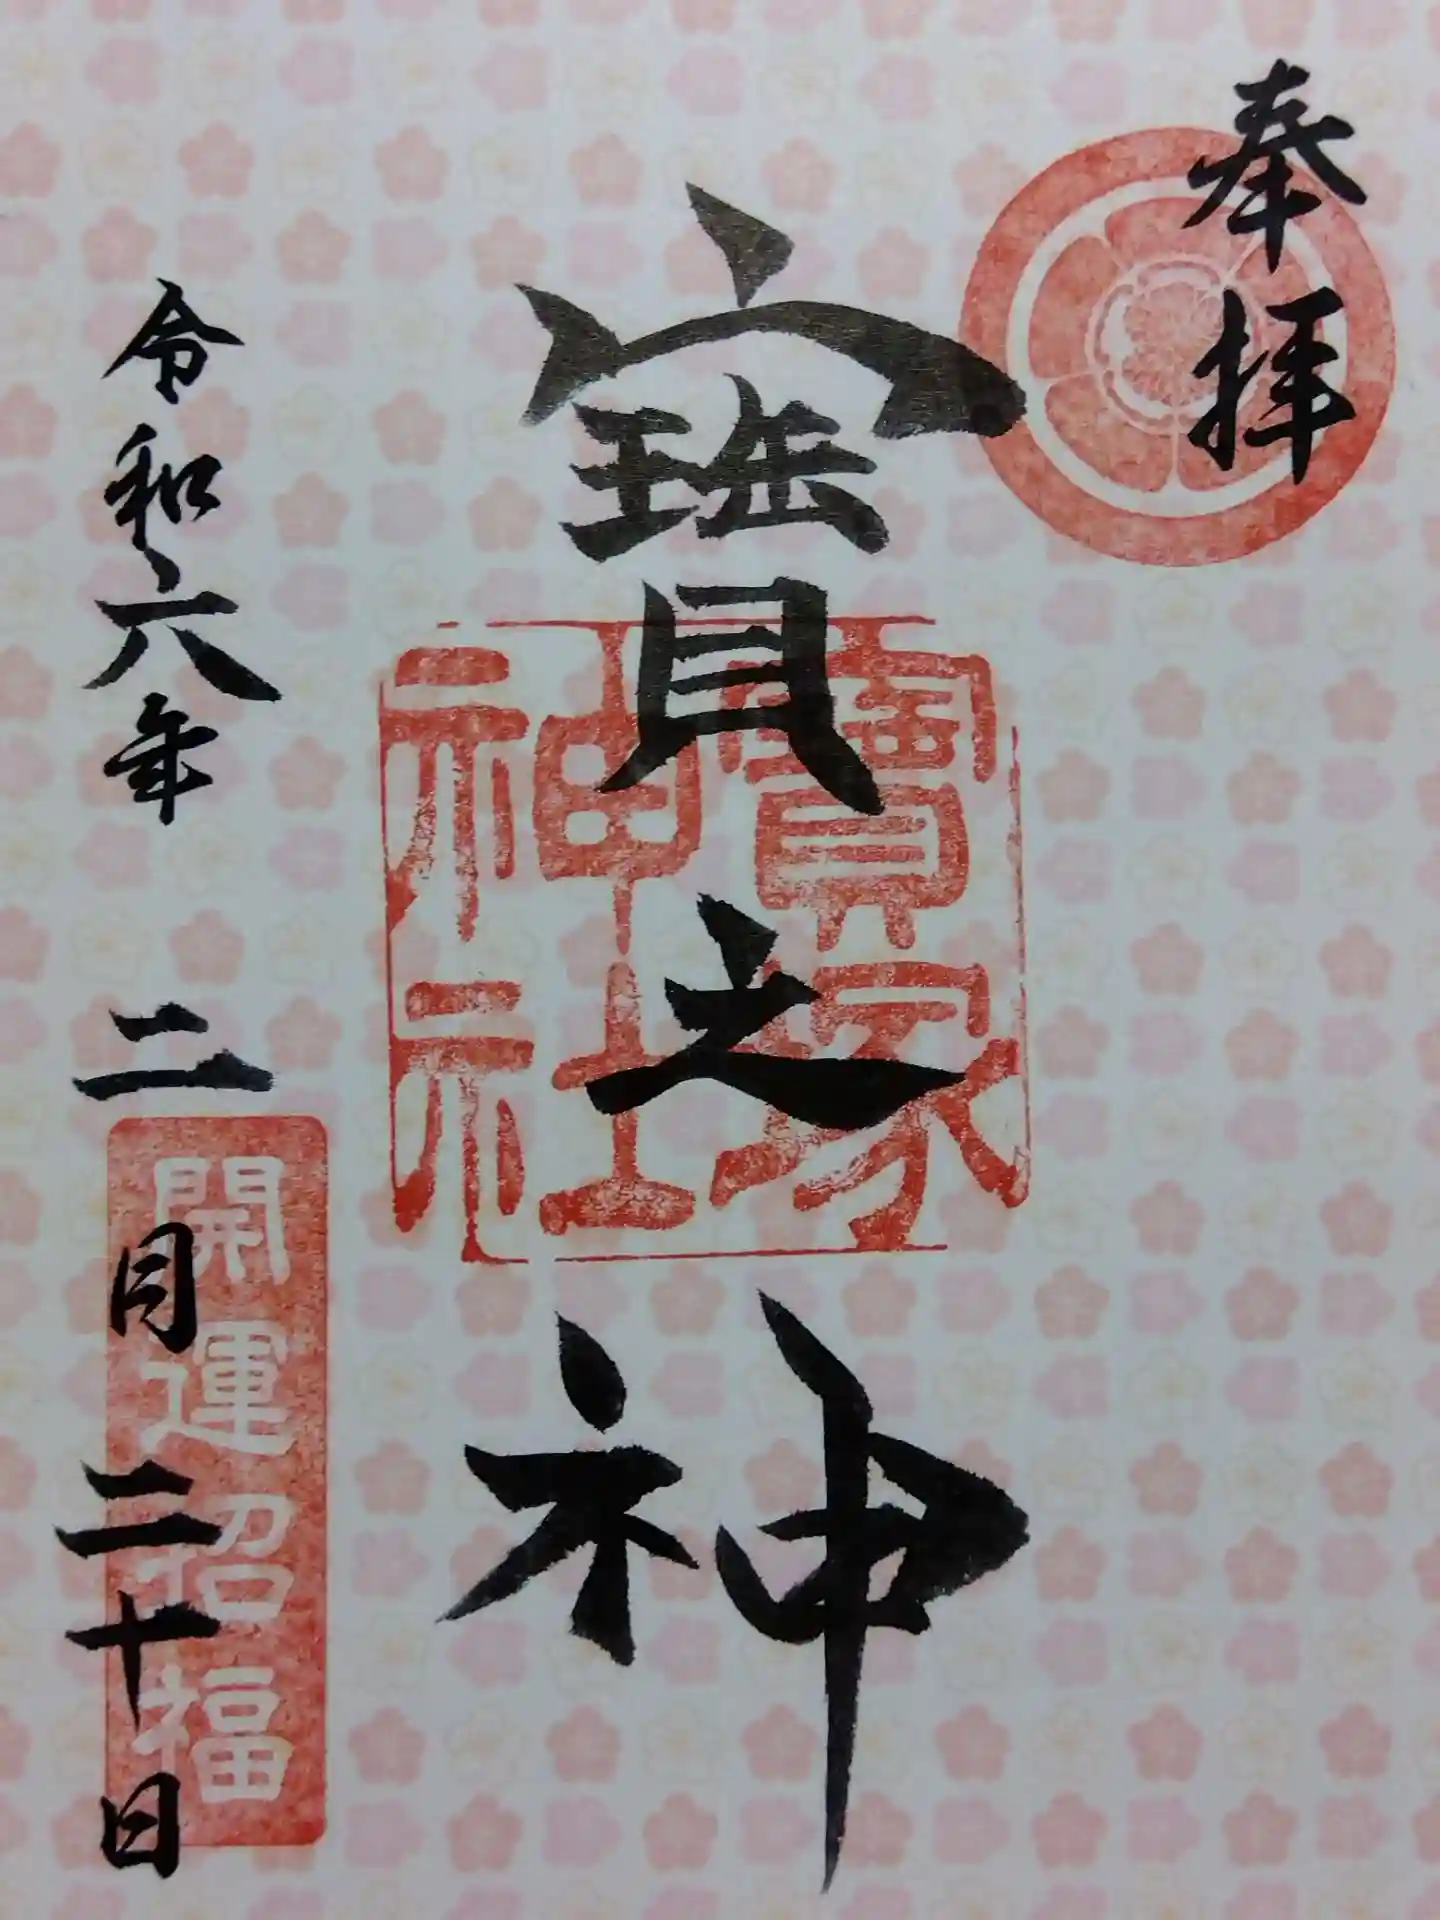 奉拝
寳之神
寳塚
神社
令和六年 二月二十日
開運招福